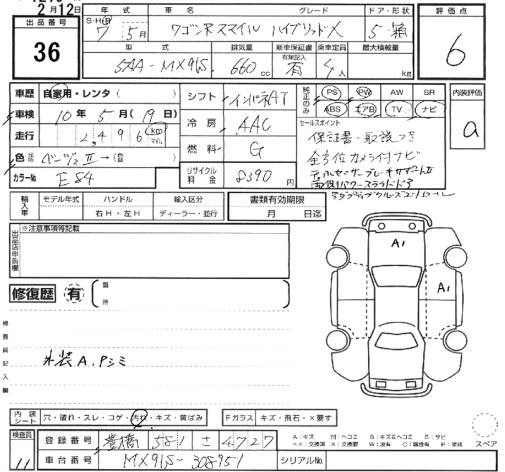 2月12日
出品番号 36
年式 車名 グレード ドア・形状 評価点
S・H・R 7年 5月 ワゴンRスマイル ハイブリッドX 5・箱 6
型式 排気量 新車保証書 乗車定員 最大積載量
有無記入
5AA-MX91S 660 cc 有 4人 kg
車歴 自家用・レンタ( )
車検 10年 5月(19日)
走行 2,496 km マイル
色 ベージュⅡ→( )
カラーNo E84
シフト インパネAT
冷房 AAC
燃料 G
リサイクル料金 8390円
純正のみ PS PW AW SR
ABS エアB TV ナビ
内装評価 a
セールスポイント
保証書・取説つき
全方位カメラ付ナビ
デュアルセンサーブレーキサポートⅡ
両側パワースライドドア
アダプティブクルーズコントロール
輸入車 モデル年式 ハンドル 輸入区分
右H・左H ディーラー・並行
書類有効期限
月 日迄
出品店申告欄 ※注意事項等記載
修復歴 有 箇所
検査員記入欄
外装A.Pシミ
A1
A1
内装シート 穴・破れ・スレ・コゲ・汚れ・キズ・黄ばみ
Fガラス キズ・飛石・×要す
検査員 11
登録番号 豊橋 581 さ 4727
車台番号 MX91S-308951 シリアルNo.
A：キズ U：ヘコミ B：キズ&ヘコミ S：サビ
スペア